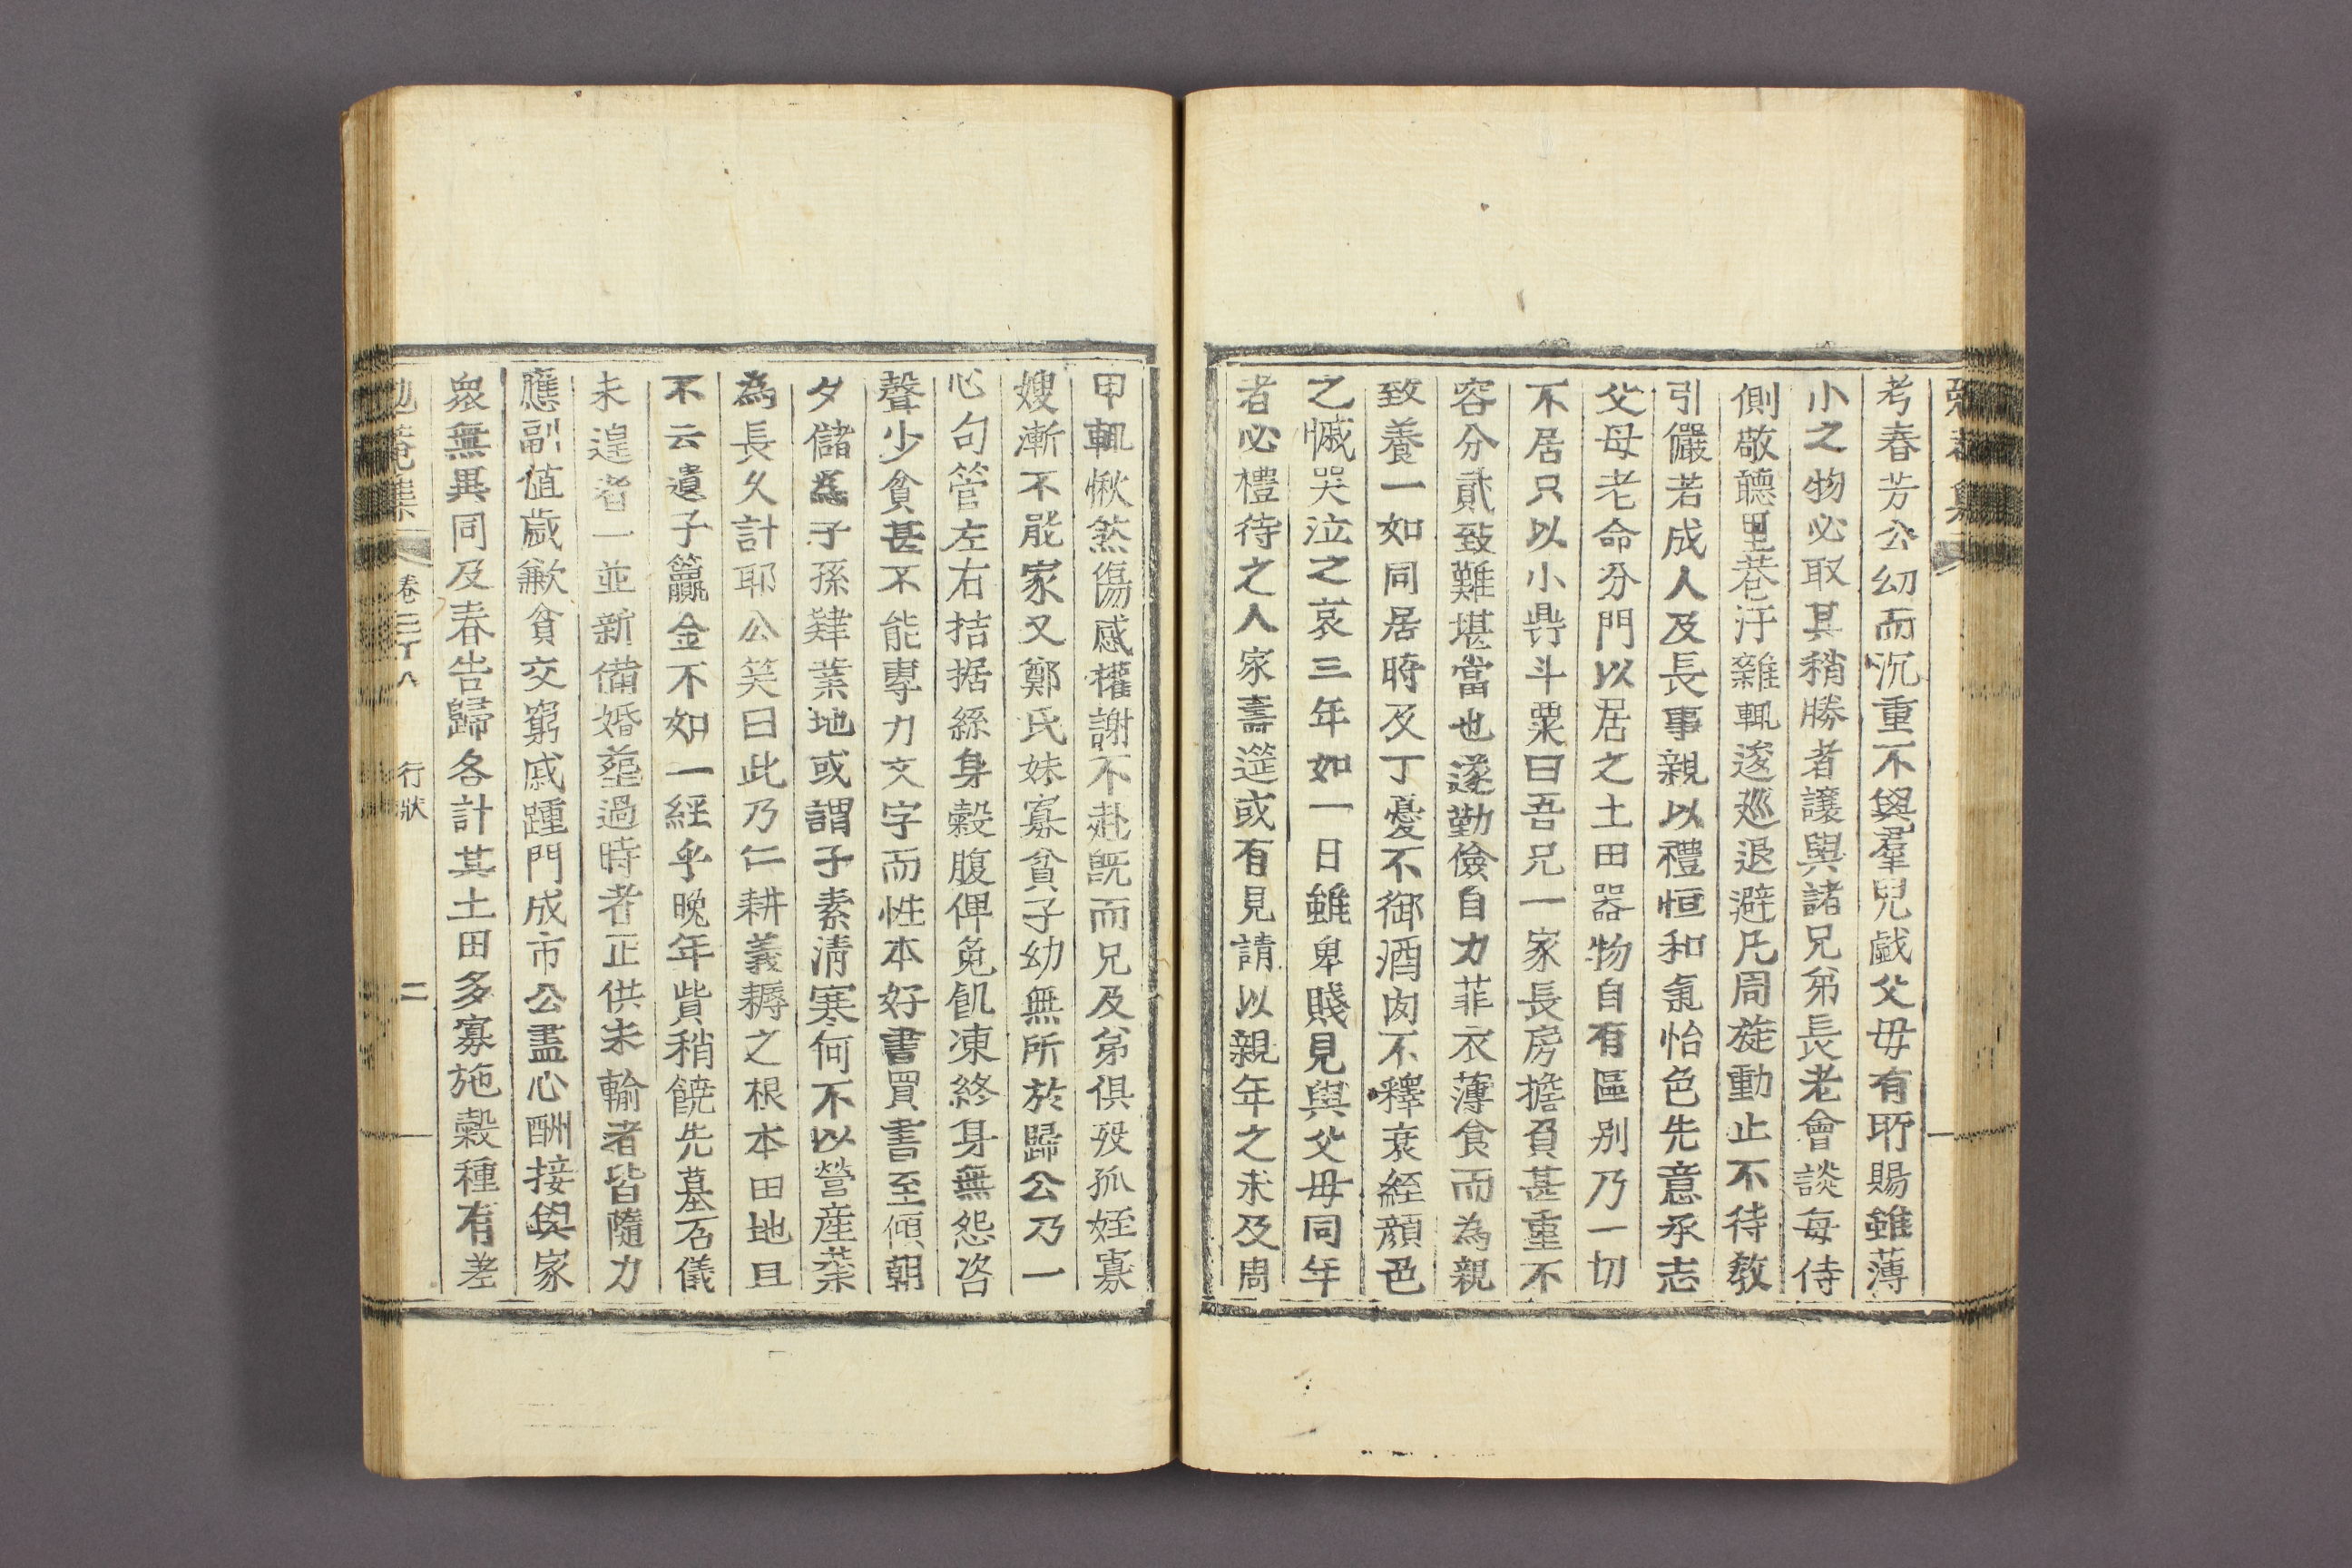 考春芳公幼而沉重不與羣兒戱父母有所賜雖薄
小之物必取其稍勝者讓與諸兄弟長老會談每侍
側敬聽里巷汙雜輒逡巡退避凡周旋動止不待敎
引儼若成人及長事親以禮恒和氣怡色先意承志
父母老命分門以居之土田器物自有區别乃一切
不居只以小鼎斗粟曰吾兄一家長房擔負甚重不
容分貳致難堪當也遂勤儉自力菲衣薄食而為親
致養一如同居時及丁憂不御酒肉不釋衰絰顔色
之慽哭泣之哀三年如一日雖卑賤見與父母同年
者必禮待之人家壽筵或有見請以親年之未及周
甲輒愀然傷感權謝不赴旣而兄及弟俱歿孤姪寡
嫂漸不能家又鄭氏妹寡貧子幼無所於歸公乃一
心句管左右拮据絲身穀腹俾免飢凍終身無怨咨
聲少貧甚不能專力文字而性本好書買書至傾朝
夕儲爲子孫肄業地或謂子素淸寒何不以營産業
為長久計耶公笑曰此乃仁耕義耨之根本田地且
不云遺子籯金不如一經乎晚年貲稍饒先墓石儀
未遑者一並新備婚塟過時者正供未輸者皆隨力
應副値歲歉貧交窮戚踵門成市公盡心酬接與家
衆無異同及春告歸各計其土田多寡施穀種有差
菴集 卷三十八 行狀 二